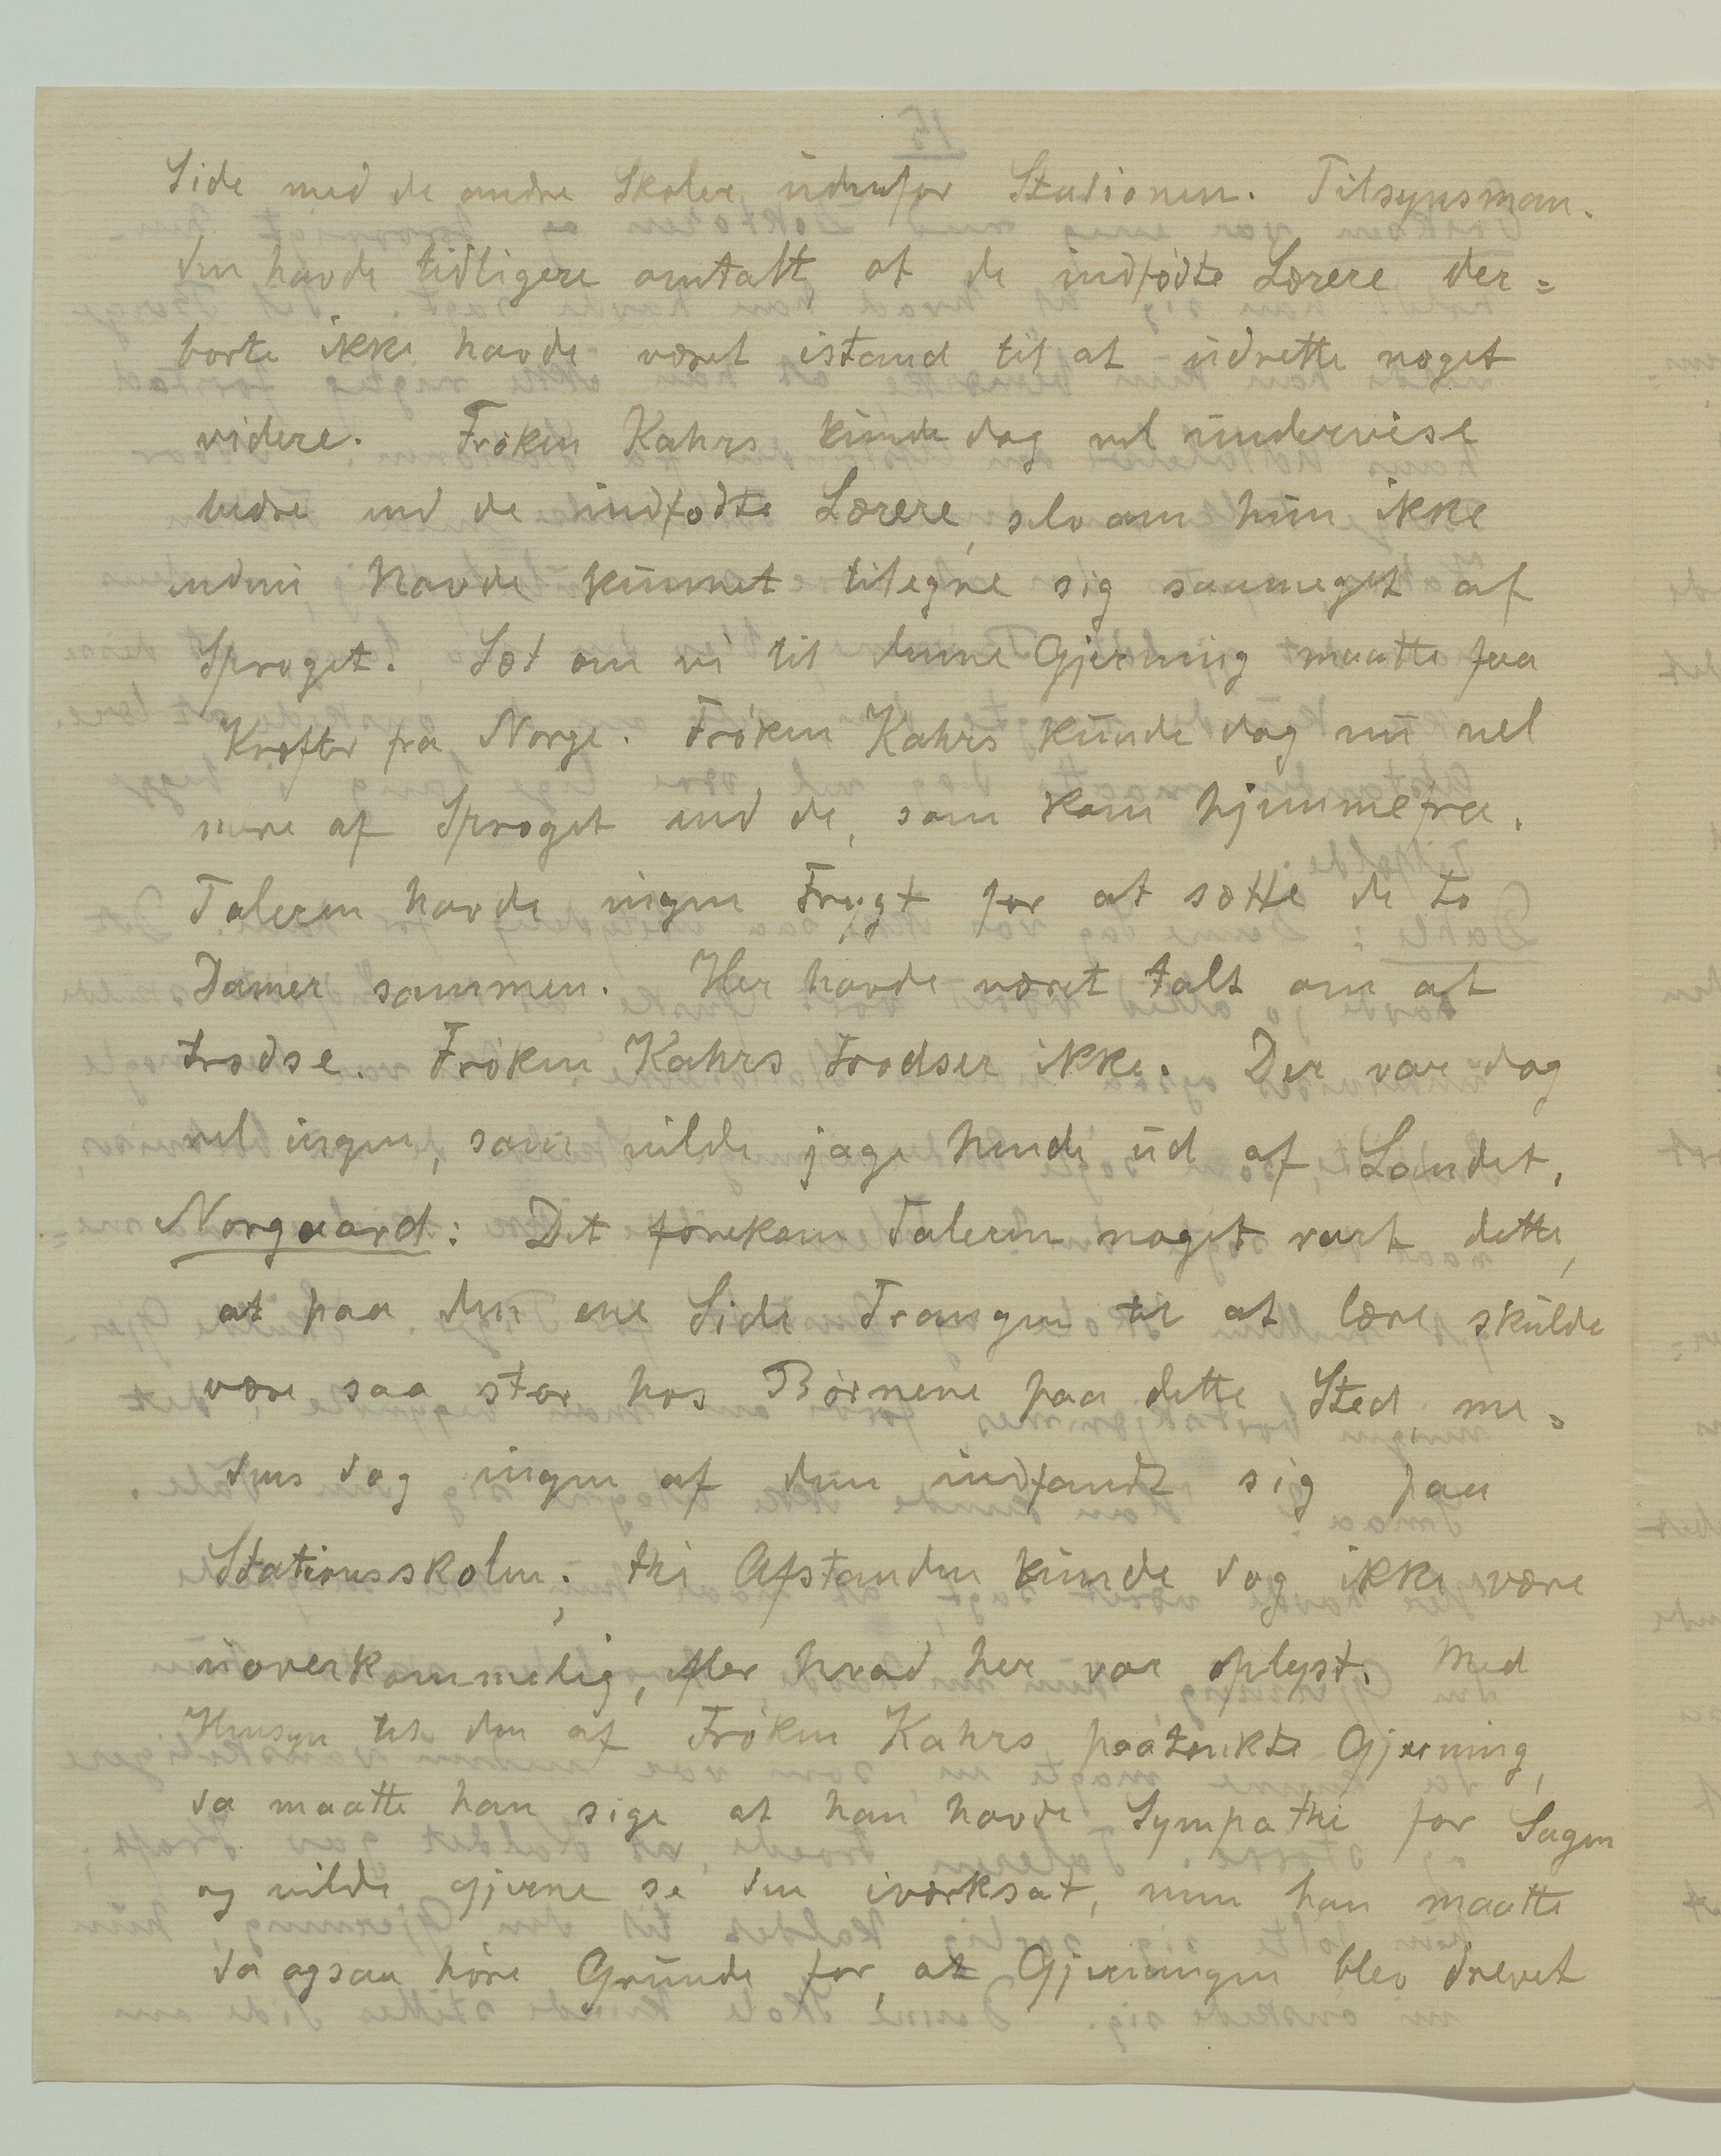 Side med de andre Skoler udenfor Stationen. Tilsynsman-
den havde tidligere omtalt, at de indfødte Lærere der=
borte ikke havde været istand til at udrette noget
videre. Frøken Kahrs kunde dog vel undervise
bedre end de indfødte Lærere, selv om hun ikke
endnu havde kunnet tilegne sig saameget af
Sproget. Sæt om vi til denne Gjerning maatte faa
Kræfter fra Norge. Frøken Kahrs kunde dog nu vel
mere af Sproget end de, som kom hjemmefra.
Taleren havde ingen Frygt for at sætte de to
Damer sammen. Her havde været talt om at
trodse. Frøken Kahrs trodser ikke. Der var dog
vel ingen, som vilde jage hende ud af Landet.
Norgaard: Det forekom Taleren noget rart dette,
at paa den ene Side Trangen til at lære skulde
være saa stor hos Børnene paa dette Sted, me=
dens dog ingen af dem indfandt sig paa
Stationsskolen; thi Afstanden kunde dog ikke være
uoverkommelig, efter hvad her var oplyst. Med
Hensyn til den af Frøken Kahrs paatænkte Gjerning,
da maatte han sige at han havde Sympathi for Sagen
og vilde gjerne se den iværksat, men han maatte
da ogsaa høre Grunde for, at Gjerningen blev drevet